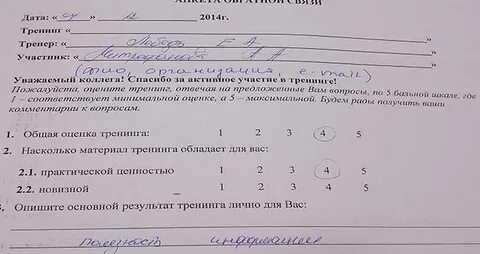 АНКЕТА ОБРАТНОЙ СВЯЗИ
Дата: « » 2014г.
Тренинг « »
Тренер: « Лебедь Е А »
Участник: « А А »
(ФИО, организация, e-mail)
Уважаемый коллега! Спасибо за активное участие в тренинге!
Пожалуйста, оцените тренинг, отвечая на предложенные Вам вопросы, по 5 бальной шкале, где
1 – соответствует минимальной оценке, а 5 – максимальной. Будем рады получить ваши
комментарии к вопросам.
1. Общая оценка тренинга: 1 2 3 4 5
2. Насколько материал тренинга обладает для вас:
2.1. практической ценностью 1 2 3 4 5
2.2. новизной 1 2 3 4 5
3. Опишите основной результат тренинга лично для Вас:
полезность информации